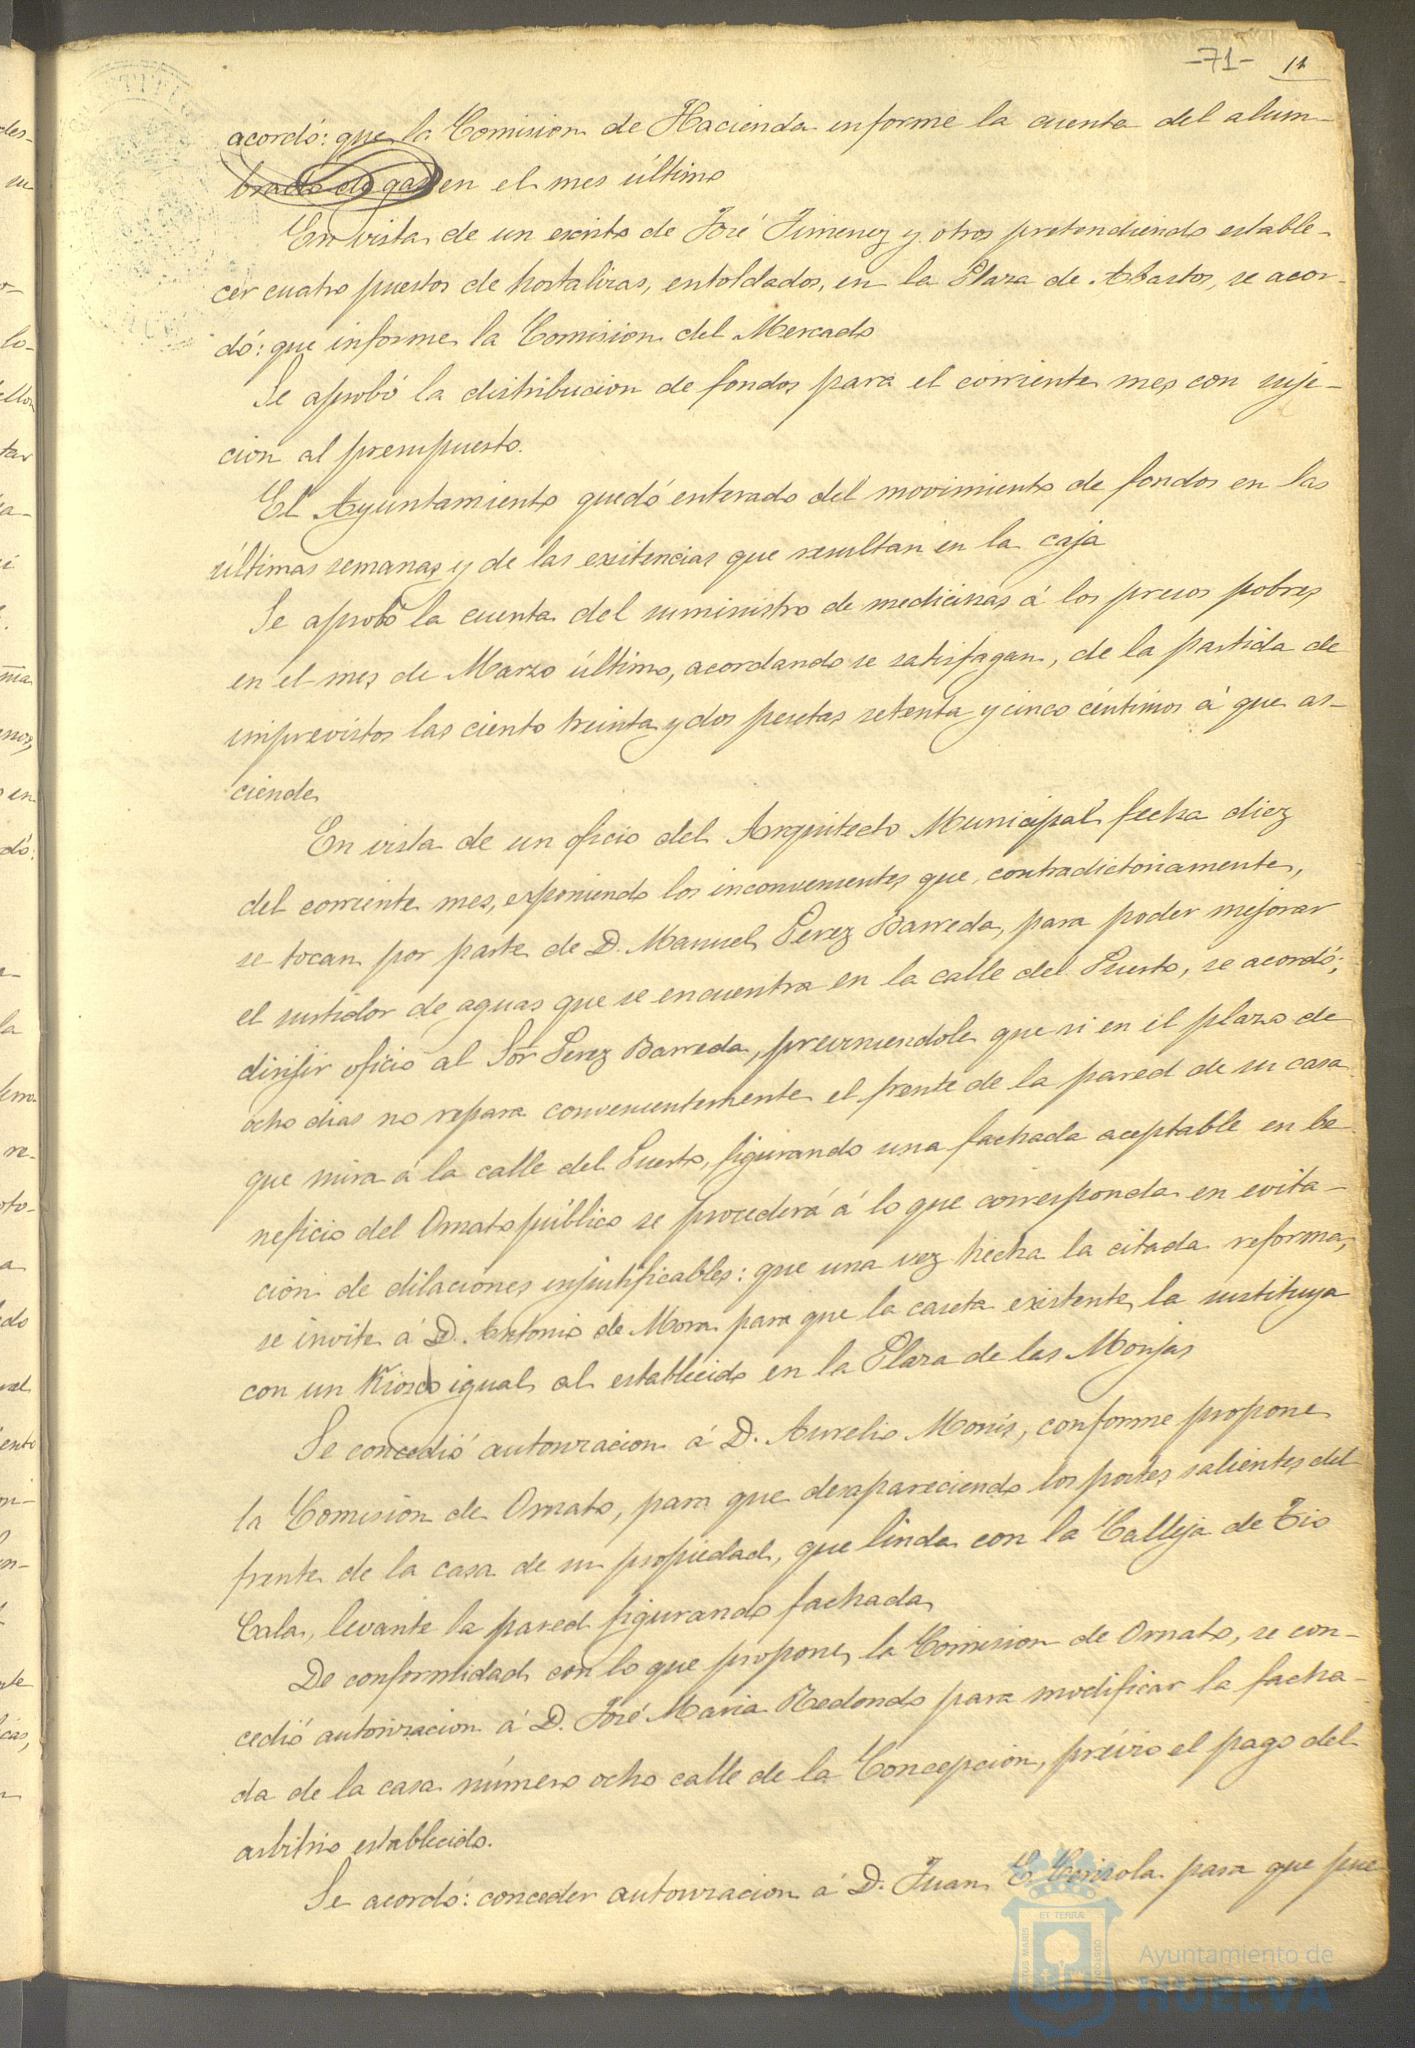 -71- 11
acordó: que la Comision de Hacienda informe la cuenta del alum-
brado de gas en el mes último
En vista de un escrito de José Jimenez y otros pretendiendo estable-
cer cuatro puestos de hortalizas, entoldados, en la Plaza de Abastos, se acor-
dó: que informe la Comision del Mercado
Se aprobó la distribucion de fondos para el corriente mes con suje-
cion al presupuesto.
El Ayuntamiento quedó enterado del movimiento de fondos en las
últimas semanas y de las existencias que resultan en la caja
Se aprobó la cuenta del suministro de medicinas á los presos pobres
en el mes de Marzo último, acordando se satisfagan, de la partida de
imprevistos las ciento treinta y dos pesetas setenta y cinco céntimos á que as-
ciende
En vista de un oficio del Arquitecto Municipal fecha diez
del corriente mes, exponiendo los inconvenientes que, contradictoriamente,
se tocan por parte de D. Manuel Perez Barreda, para poder mejorar
el surtidor de aguas que se encuentra en la calle del Puerto, se acordó:
dirijir oficio al Sor Perez Barreda, previniendole que si en el plazo de
ocho dias no repara convenientemente el frente de la pared de su casa
que mira á la calle del Puerto, figurando una fachada aceptable en be-
neficio del Ornato público se procederá á lo que corresponda en evita-
ción de dilaciones injustificables: que una vez hecha la citada reforma,
se invite á D. Antonio de Mora para que la caseta existente, la sustituya
con un Kiosco igual al establecido en la Plaza de las Monjas
Se concedió autorizacion á D. Aurelio Monís, conforme propone
la Comision de Ornato, para que desapareciendo los postes salientes del
frente de la casa de su propiedad, que linda con la Calleja de Tio
Cala, levante la pared figurando fachada
De conformidad con lo que propone la Comision de Ornato, se con-
cedió autorizacion á D. José Maria Redondo para modificar la facha-
da de la casa número ocho calle de la Concepcion, prévio el pago del
arbitrio establecido.
Se acordó: conceder autorizacion á D. Juan E. para que pue
Ayuntamiento de
HUELVA